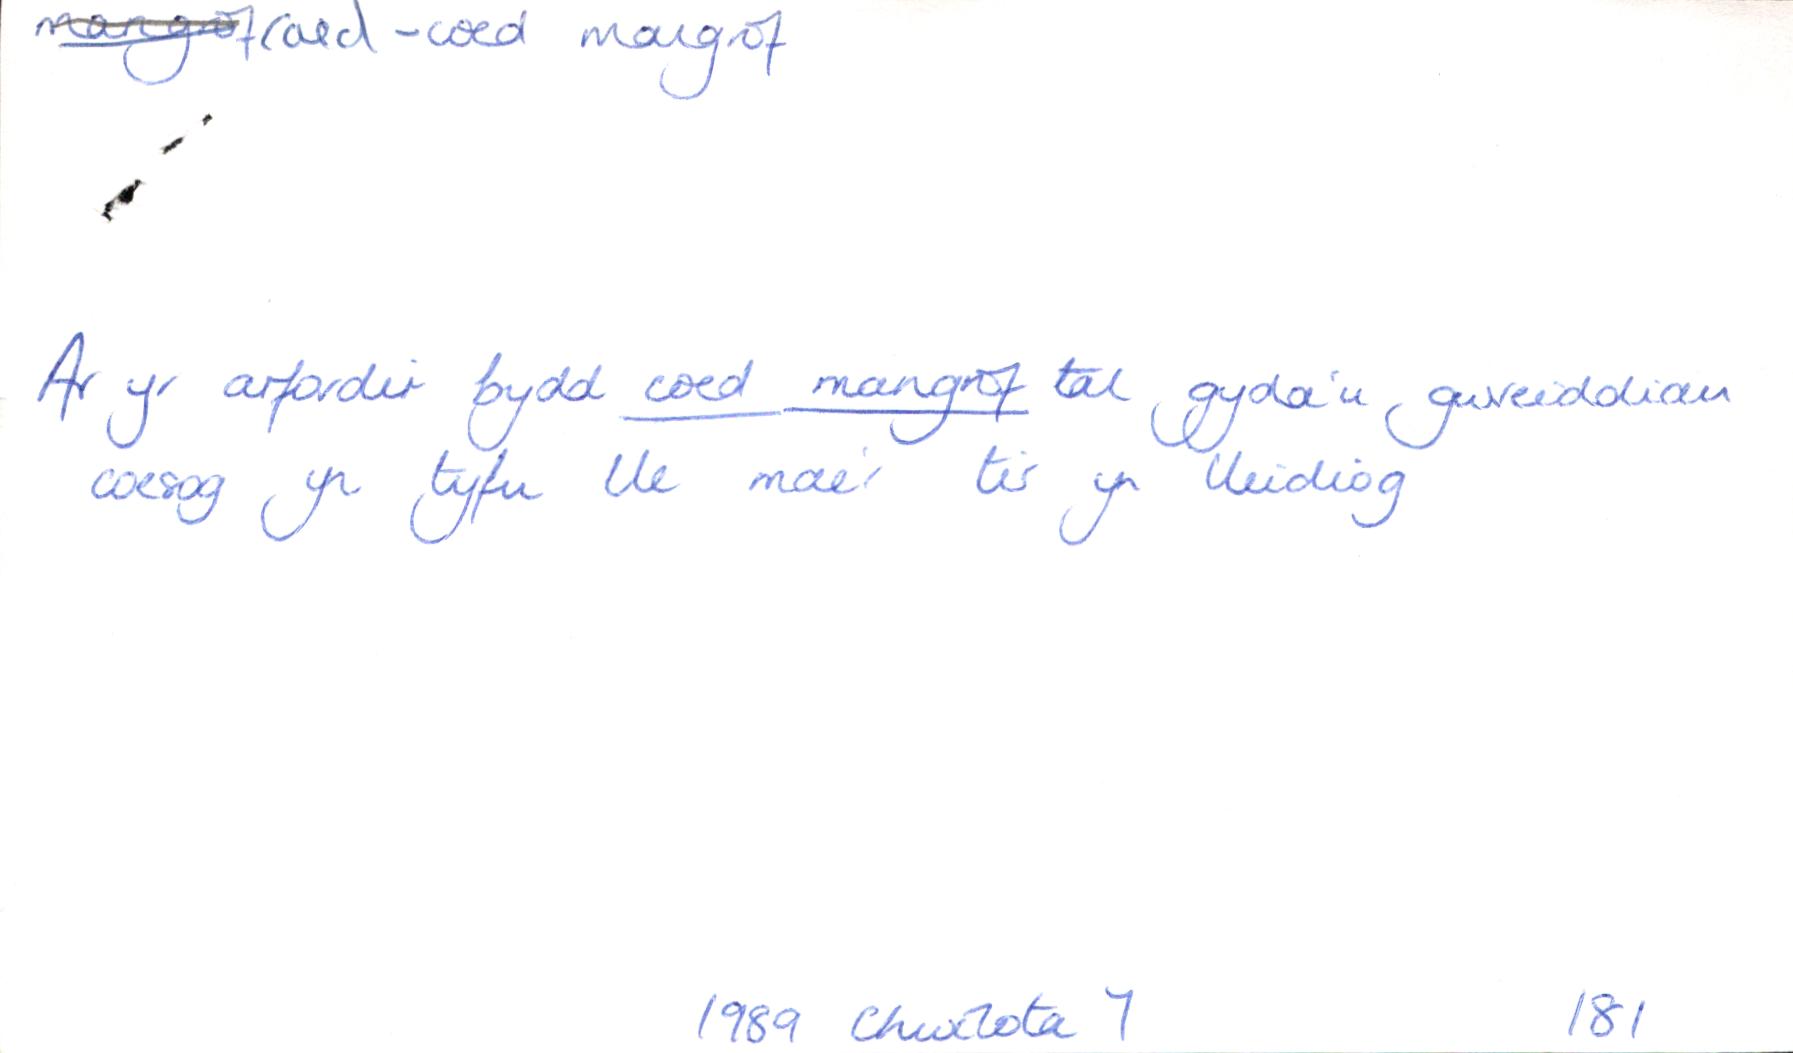 mangrof coed - coed mangrof
Ar yr arfordir bydd coed mangrof tal gyda'u gwreiddiau
coesog yn tyfu lle mae'r tir yn lleidiog
1989 Chwilota 7 181